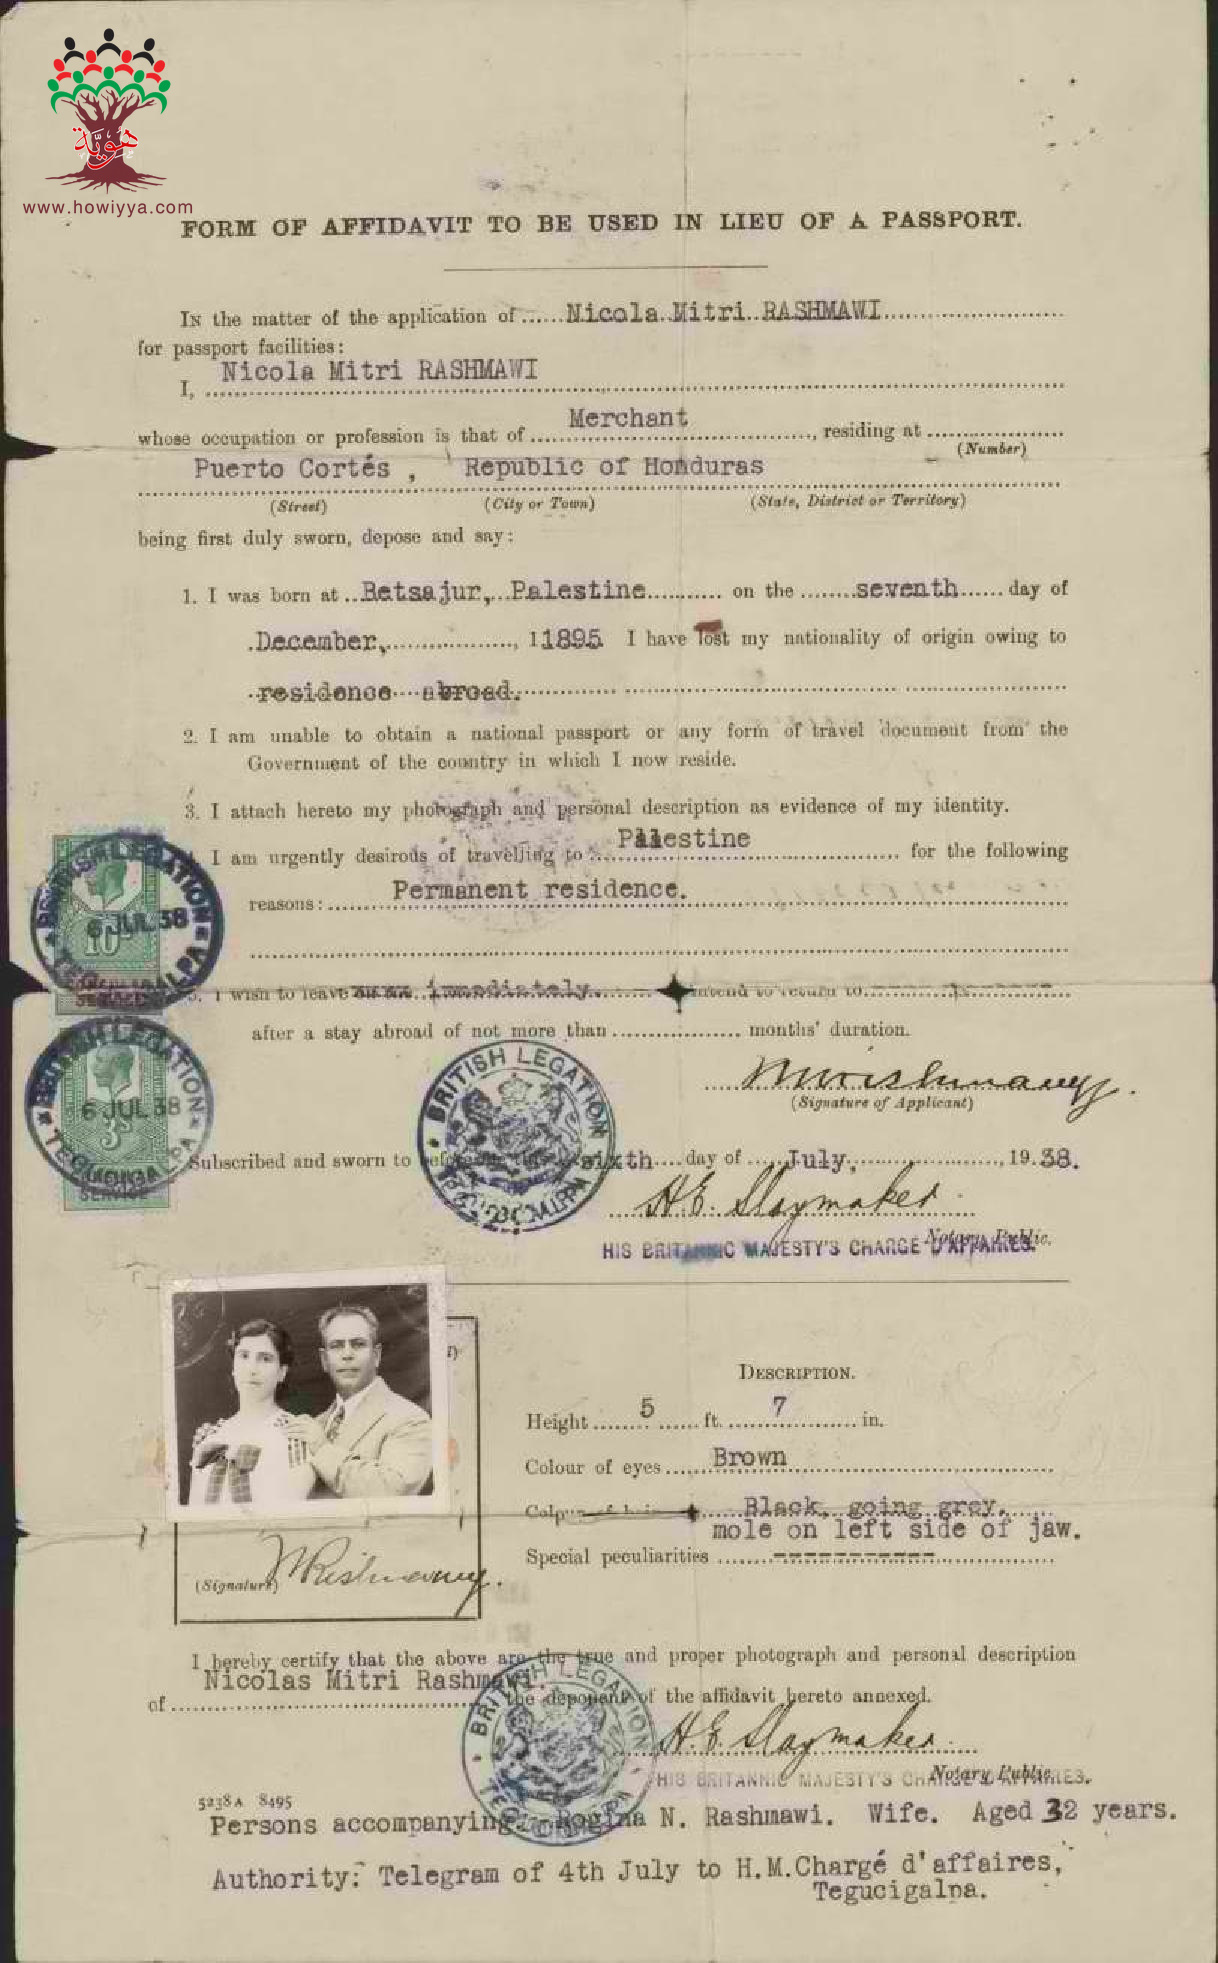 هوية
www.howiyya.com
FORM OF AFFIDAVIT TO BE USED IN LIEU OF A PASSPORT.
IN the matter of the application of ...... Nicola Mitri RASHMAWI
for passport facilities:
Nicola Mitri RASHMAWI
I,
Merchant
whose occupation or profession is that of ........, residing at
(Number)
Puerto Cortés , Republic of Honduras
(Street) (City or Town) (State, District or Territory)
being first duly sworn, depose and say:
1. I was born at .. Betsajur, Palestine ........ on the ........ seventh ...... day of
December, ........, 11895 I have lost my nationality of origin owing to
residence abroad.
2. I am unable to obtain a national passport or any form of travel document from the
Government of the country in which I now reside.
3. I attach hereto my photograph and personal description as evidence of my identity.
Palestine
I am urgently desirous of travelling to ........ for the following
Permanent residence.
reasons:
5. I wish to leave immediately. intend to return to
after a stay abroad of not more than ........ months' duration.
(Signature of Applicant)
Subscribed and sworn to before me this sixth .... day of ..... July, ........, 19.38.
H.E. Slaymaker
Notary Public.
HIS BRITANNIC MAJESTY'S CHARGE D'AFFAIRES.
BRITISH LEGATION
6 JUL 38
10s
TEGUCIGALPA
CONSULAR
SERVICE
BRITISH LEGATION
6 JUL 38
3s
TEGUCIGALPA
SERVICE
BRITISH LEGATION
TEGUCIGALPA
DESCRIPTION.
Height ........ 5 ...... ft. ........ 7 ........ in.
Colour of eyes ...... Brown
Colour of hair ...... Black, going grey.
mole on left side of jaw.
Special peculiarities
(Signature)
I hereby certify that the above are the true and proper photograph and personal description
Nicolas Mitri Rashmawi.
of ........ the deponent of the affidavit hereto annexed.
BRITISH LEGATION
TEGUCIGALPA
H.E. Slaymaker
Notary Public.
HIS BRITANNIC MAJESTY'S CHARGE D'AFFAIRES.
5238A 8495
Persons accompanying:- Regina N. Rashmawi. Wife. Aged 32 years.
Authority: Telegram of 4th July to H.M.Chargé d'affaires,
Tegucigalpa.